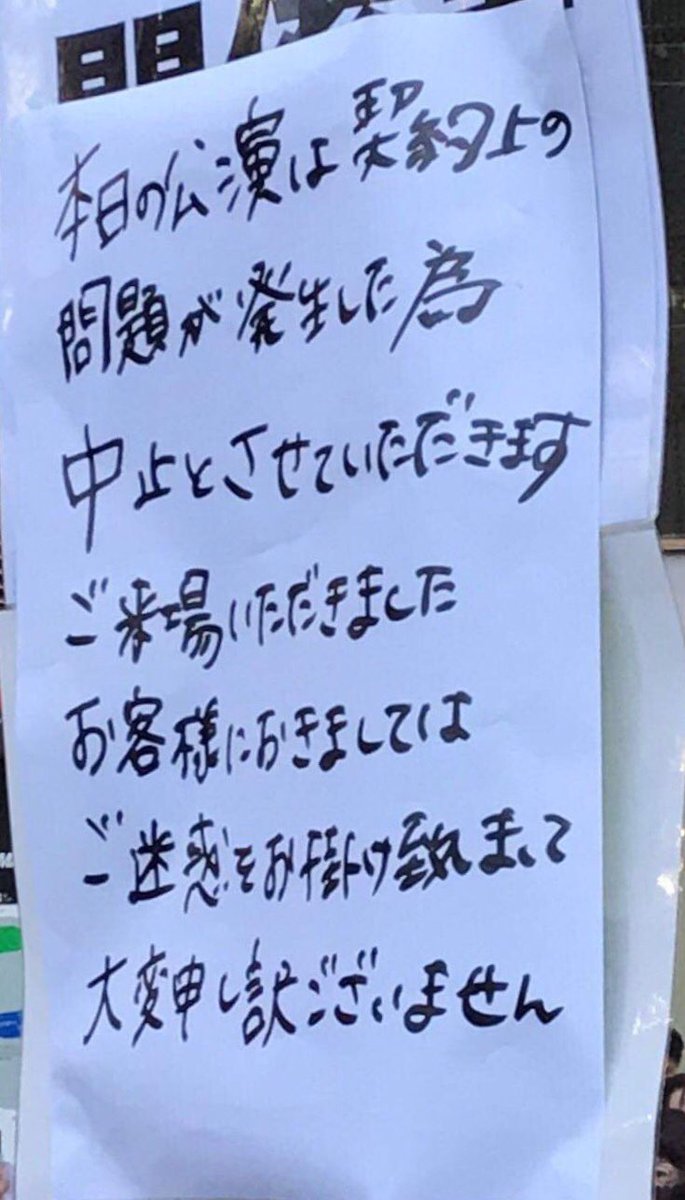 本日の公演は契約上の
問題が発生した為
中止とさせていただきます
ご来場いただきました
お客様におきましては
ご迷惑をお掛け致しまして
大変申し訳ございません